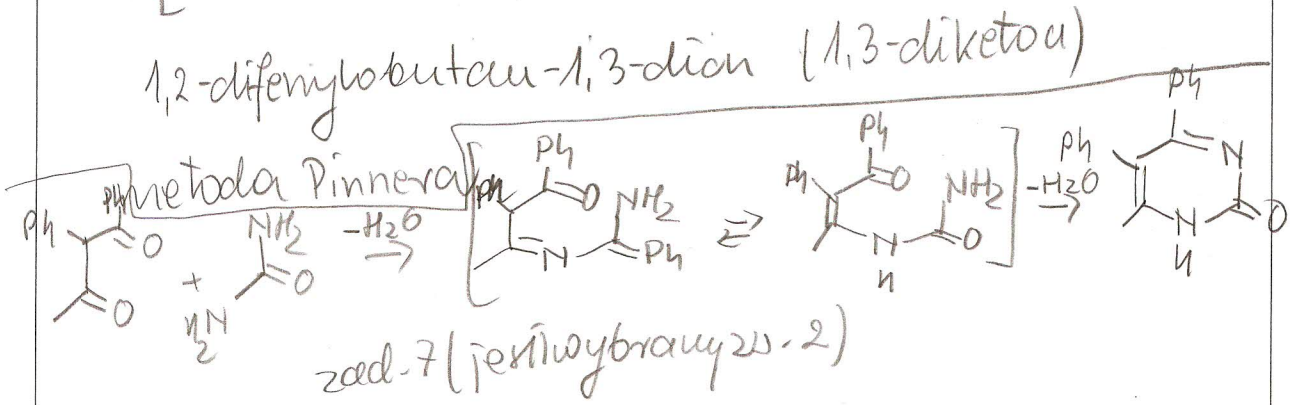 1,2-difenylobutan-1,3-dion (1,3-diketon)
metoda Pinnera
Ph Ph O O + NH2 O H2N -H2O → [ Ph Ph O NH2 N Ph ⇌ Ph Ph O NH2 N H O ] -H2O → Ph Ph N N H O
zad. 7 (jeśli wybrany zw. 2)